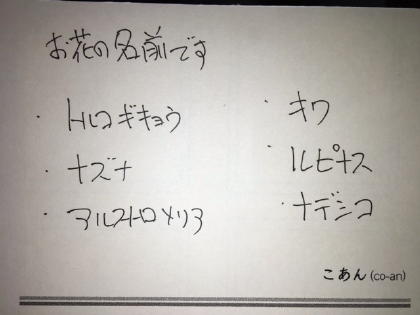 お花の名前です
・トルコギキョウ
・ナズナ
・アルストロメリア
・キク
・ルピナス
・ナデシコ
こあん(co-an)